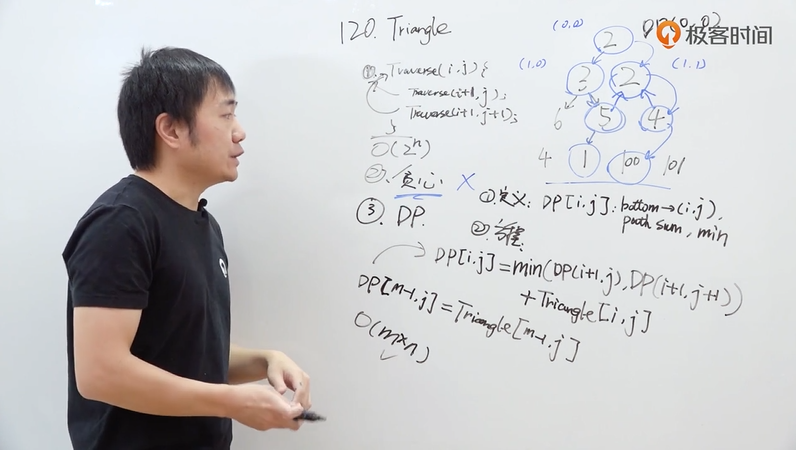 120. Triangle
DP(0,0)
极客时间
(0.0)
2
(1.0)
3
2
(1.1)
6
5
4
4
1
100
101
①. Traverse(i,j){
Traverse(i+1,j);
Traverse(i+1,j+1);
}
O(2ⁿ)
②. 贪心 X
③. DP.
①定义: DP[i,j]: bottom→(i,j),
path sum, min
②.方程:
DP[i,j]=min(DP(i+1,j),DP(i+1,j+1))
+Triangle[i,j]
DP[m-1,j]=Triangle[m-1,j]
O(m×n)